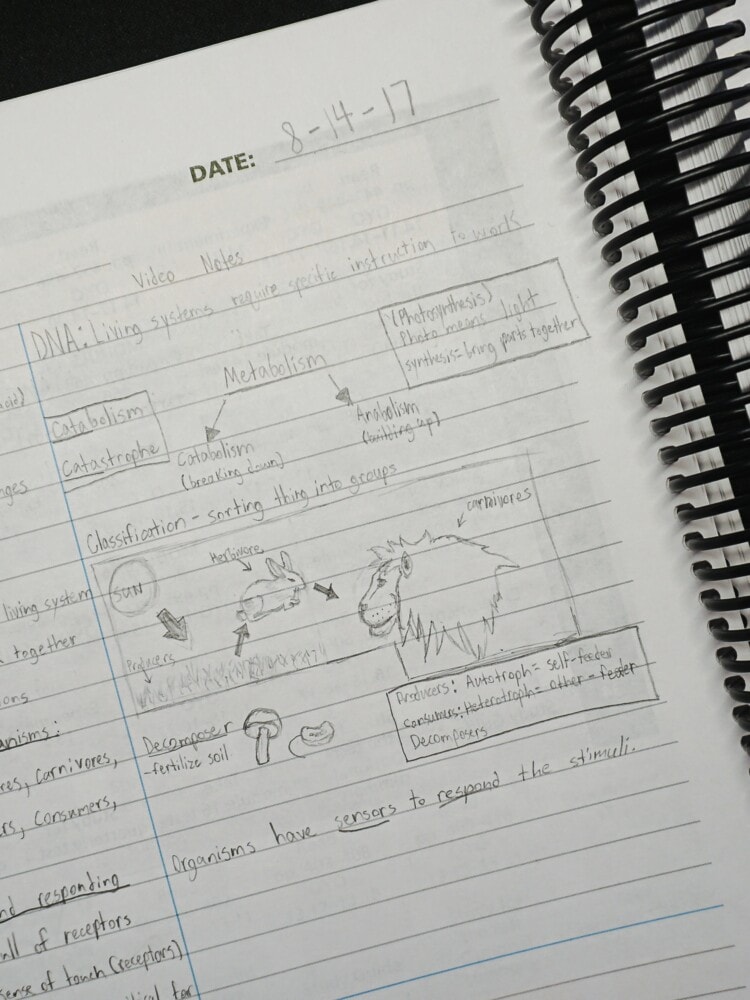 DATE: 8-14-17
Video Notes
DNA: Living systems require specific instruction to work
(Photosynthesis)
Photo means light
synthesis= bring parts together
Metabolism
Catabolism
Catastrophe
Catabolism
(breaking down)
Anabolism
(building up)
Classification - sorting thing into groups
carnivores
Herbivore
SUN
Producers
Producers: Autotroph= self-feeder
consumers: Heterotroph= other-feeder
Decomposers
Decomposer
-fertilize soil
Organisms have sensors to respond the stimuli.
living system
together
carnivores,
consumers,
responding
of receptors
sense of touch (receptors)